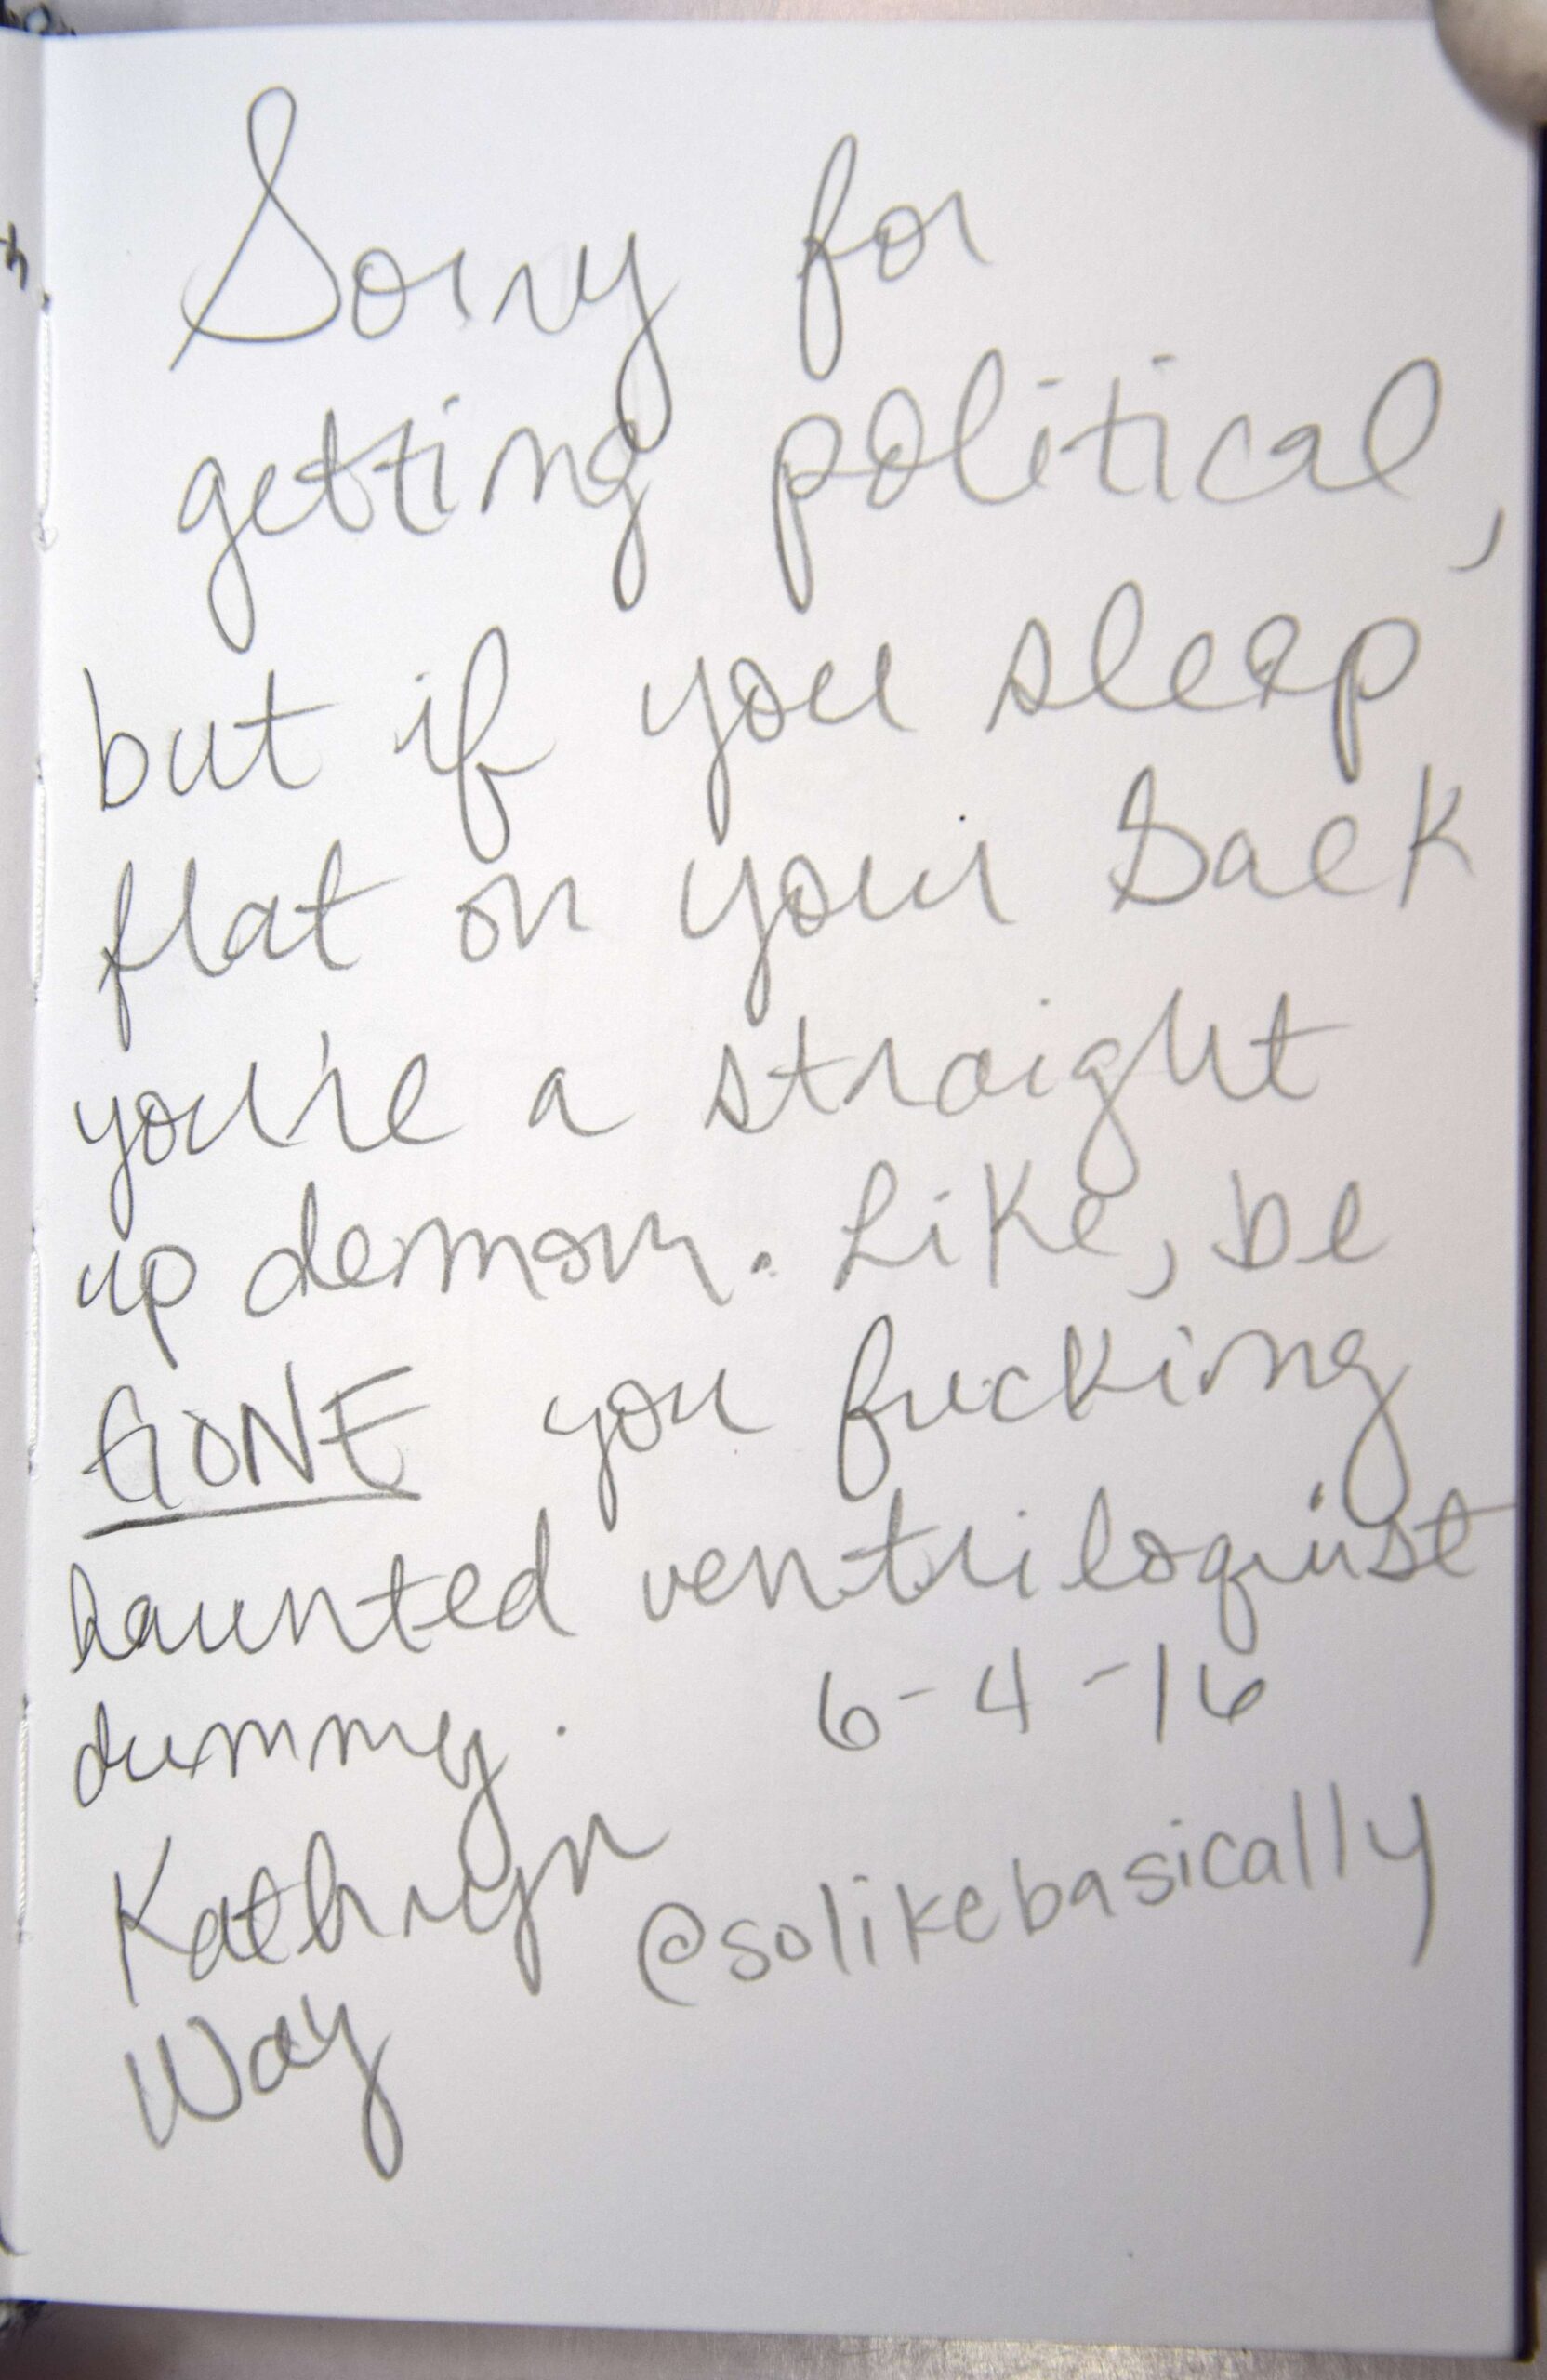 Sorry for
getting political,
but if you sleep
flat on your back
you're a straight
up demon. Like, be
GONE you fucking
haunted ventriloquist
dummy.
6-4-16
Kathryn
@solikebasically
Way